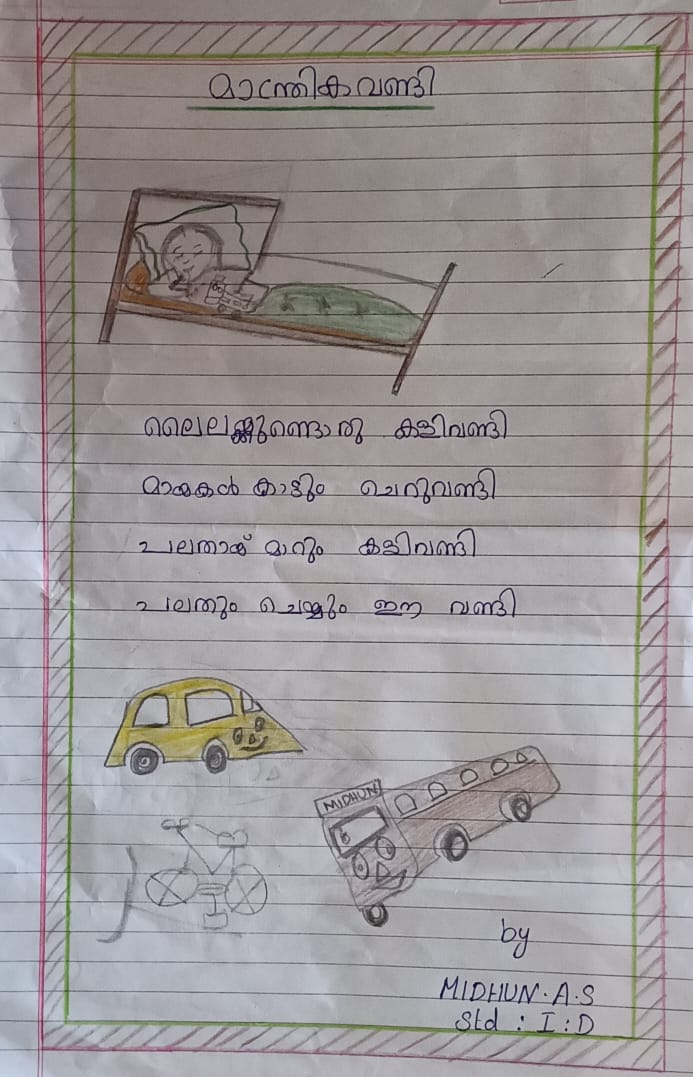 മാന്ത്രികവണ്ടി
ലൈലക്കുണ്ടൊരു കളിവണ്ടി
മായകൾ കാട്ടും ചെറുവണ്ടി
പലതായ് മാറും കളിവണ്ടി
പലതും ചെയ്യും ഈ വണ്ടി
MIDHUN
by
MIDHUN.A.S
Std : I : D